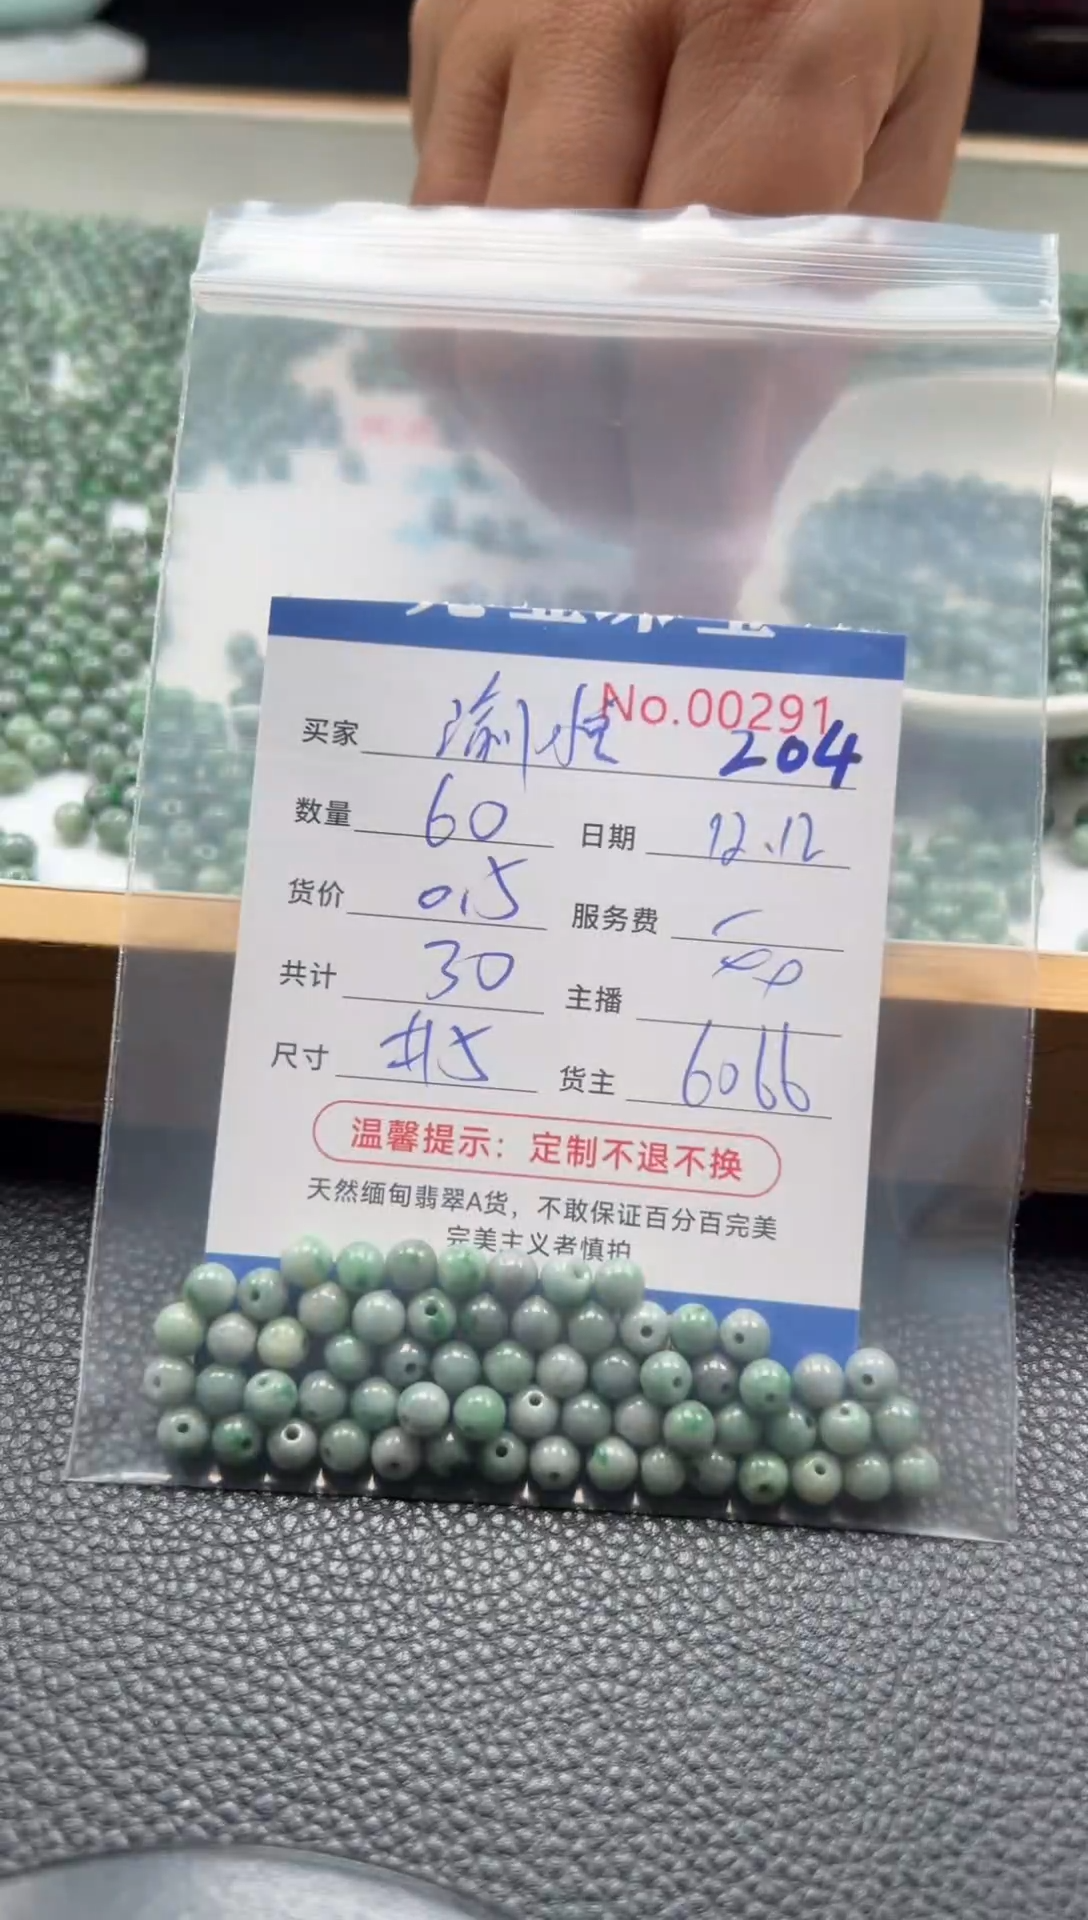 No.00291
买家 204
数量 60 日期 12.12
货价 0.5 服务费
共计 30 主播
尺寸 #5 货主 6066
温馨提示：定制不退不换
天然缅甸翡翠A货，不敢保证百分百完美
完美主义者慎拍